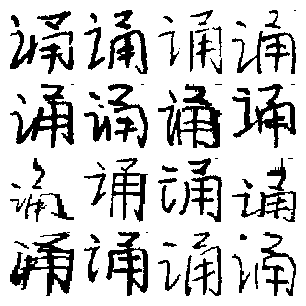 诵诵诵诵
诵诵诵诵
诵诵诵诵
诵诵诵诵